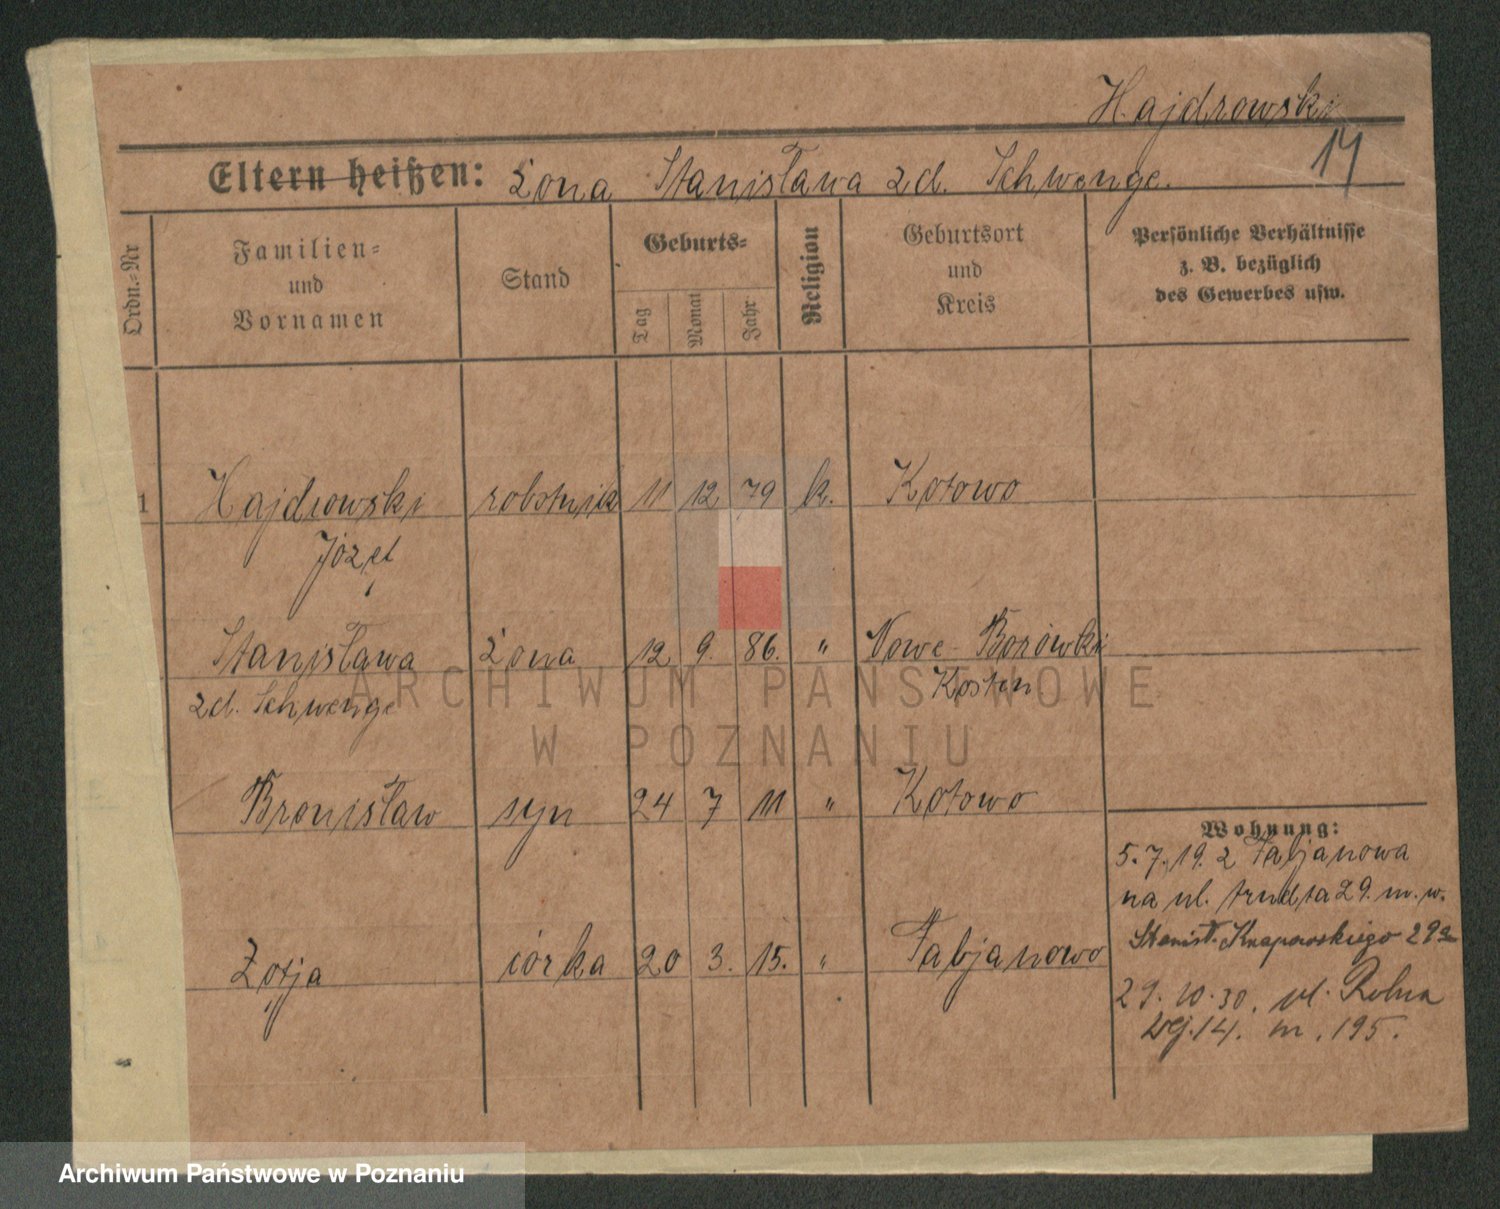 Hajdrowski
14
Eltern heißen: żona Stanisława zd. Schwenge.
Ordn.-Nr
Familien-
und
Vornamen
Stand
Geburts-
Tag
Monat
Jahr
Religion
Geburtsort
und
Kreis
Persönliche Verhältnisse
z. B. bezüglich
des Gewerbes usw.
1 Hajdrowski robotnik 11 12 79 k. Kotowo
Józef
Stanisława żona 12 9. 86. " Nowe-Borówki
zd. Schwenge Kosten
Bronisław syn 24 7 11 " Kotowo
Zofja córka 20 3. 15. " Fabjanowo
Wohnung:
5.7.19. z Fabjanowa
na ul. 29. m. w.
Stanisł. Knapowskiego 29a
29.10.30. ul. Rolna
14. m. 195.
ARCHIWUM PAŃSTWOWE
W POZNANIU
Archiwum Państwowe w Poznaniu